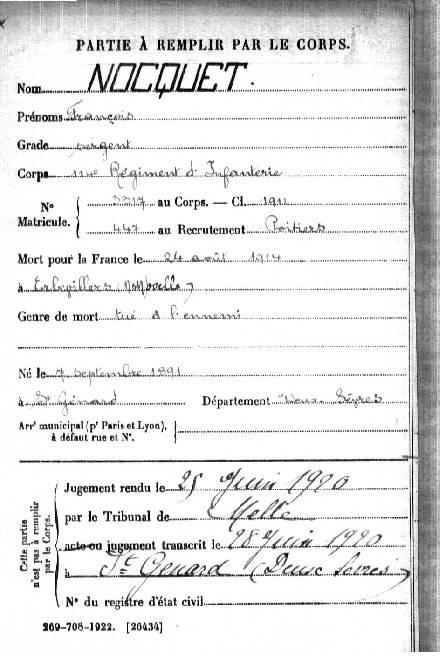 PARTIE À REMPLIR PAR LE CORPS.
Nom NOCQUET.
Prénoms François
Grade sergent
Corps Régiment d'Infanterie
N° Matricule. { 3317 au Corps. — Cl. 1911
447 au Recrutement Poitiers
Mort pour la France le 24 août 1914
à Erbéviller
Genre de mort tué à l'ennemi
Né le 7 septembre 1891
à St Génard Département Deux-Sèvres
Arr¹ municipal (p' Paris et Lyon), à défaut rue et N°. {
Cette partie n'est pas à remplir par le Corps.
Jugement rendu le 25 Juin 1920
par le Tribunal de Melle
acte ou jugement transcrit le 28 Juin 1920
à St Genard (Deux Sèvres)
N° du registre d'état civil
269-708-1922. [26434]